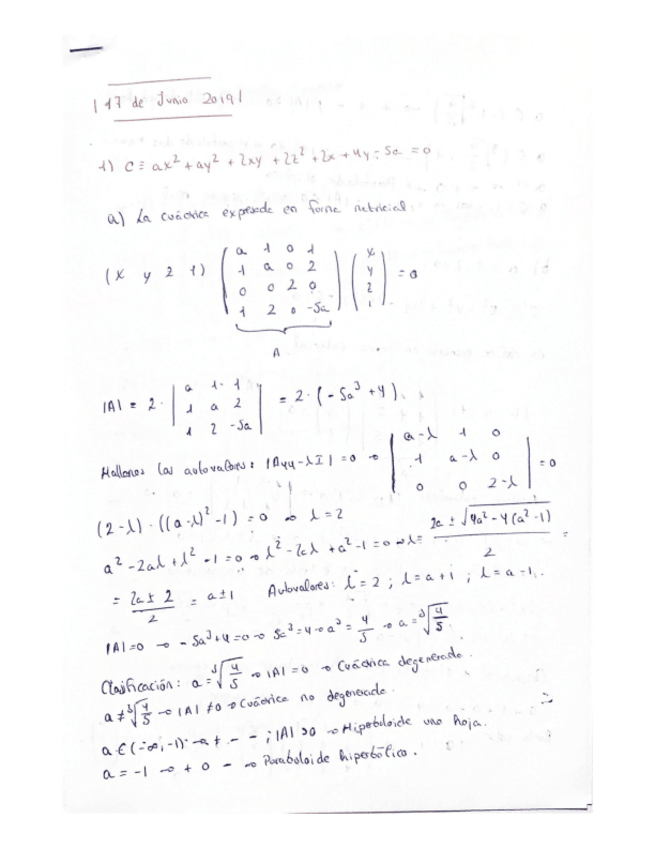 | 17 de Junio 2019 |
1) C ≡ ax² + ay² + 2xy + 2z² + 2x + 4y - 5a = 0
a) La cuádrica expresada en forma matricial
(x y z 1) ( a 1 0 1 ) ( x ) = 0
( 1 a 0 2 ) ( y )
( 0 0 2 0 ) ( z )
( 1 2 0 -5a ) ( 1 )
A
|A| = 2 · | a 1 1 | = 2 · (-5a³ + 4).
| 1 a 2 |
| 1 2 -5a |
Hallamos los autovalores: |A44 - λI| = 0 → | a-λ 1 0 | = 0
| 1 a-λ 0 |
| 0 0 2-λ |
(2-λ) · ((a-λ)² - 1) = 0 → λ = 2
a² - 2aλ + λ² - 1 = 0 → λ² - 2aλ + a² - 1 = 0 → λ = (2a ± √(4a² - 4(a² - 1))) / 2 =
= (2a ± 2) / 2 = a ± 1 Autovalores: λ = 2 ; λ = a + 1 ; λ = a - 1.
|A| = 0 → -5a³ + 4 = 0 → 5a³ = 4 → a³ = 4/5 → a = ∛(4/5)
Clasificación: a = ∛(4/5) → |A| = 0 → Cuádrica degenerada.
a ≠ ∛(4/5) → |A| ≠ 0 → Cuádrica no degenerada.
a ∈ (-∞, -1) → + - - ; |A| > 0 → Hiperboloide una hoja.
a = -1 → + 0 - → Paraboloide hiperbólico.